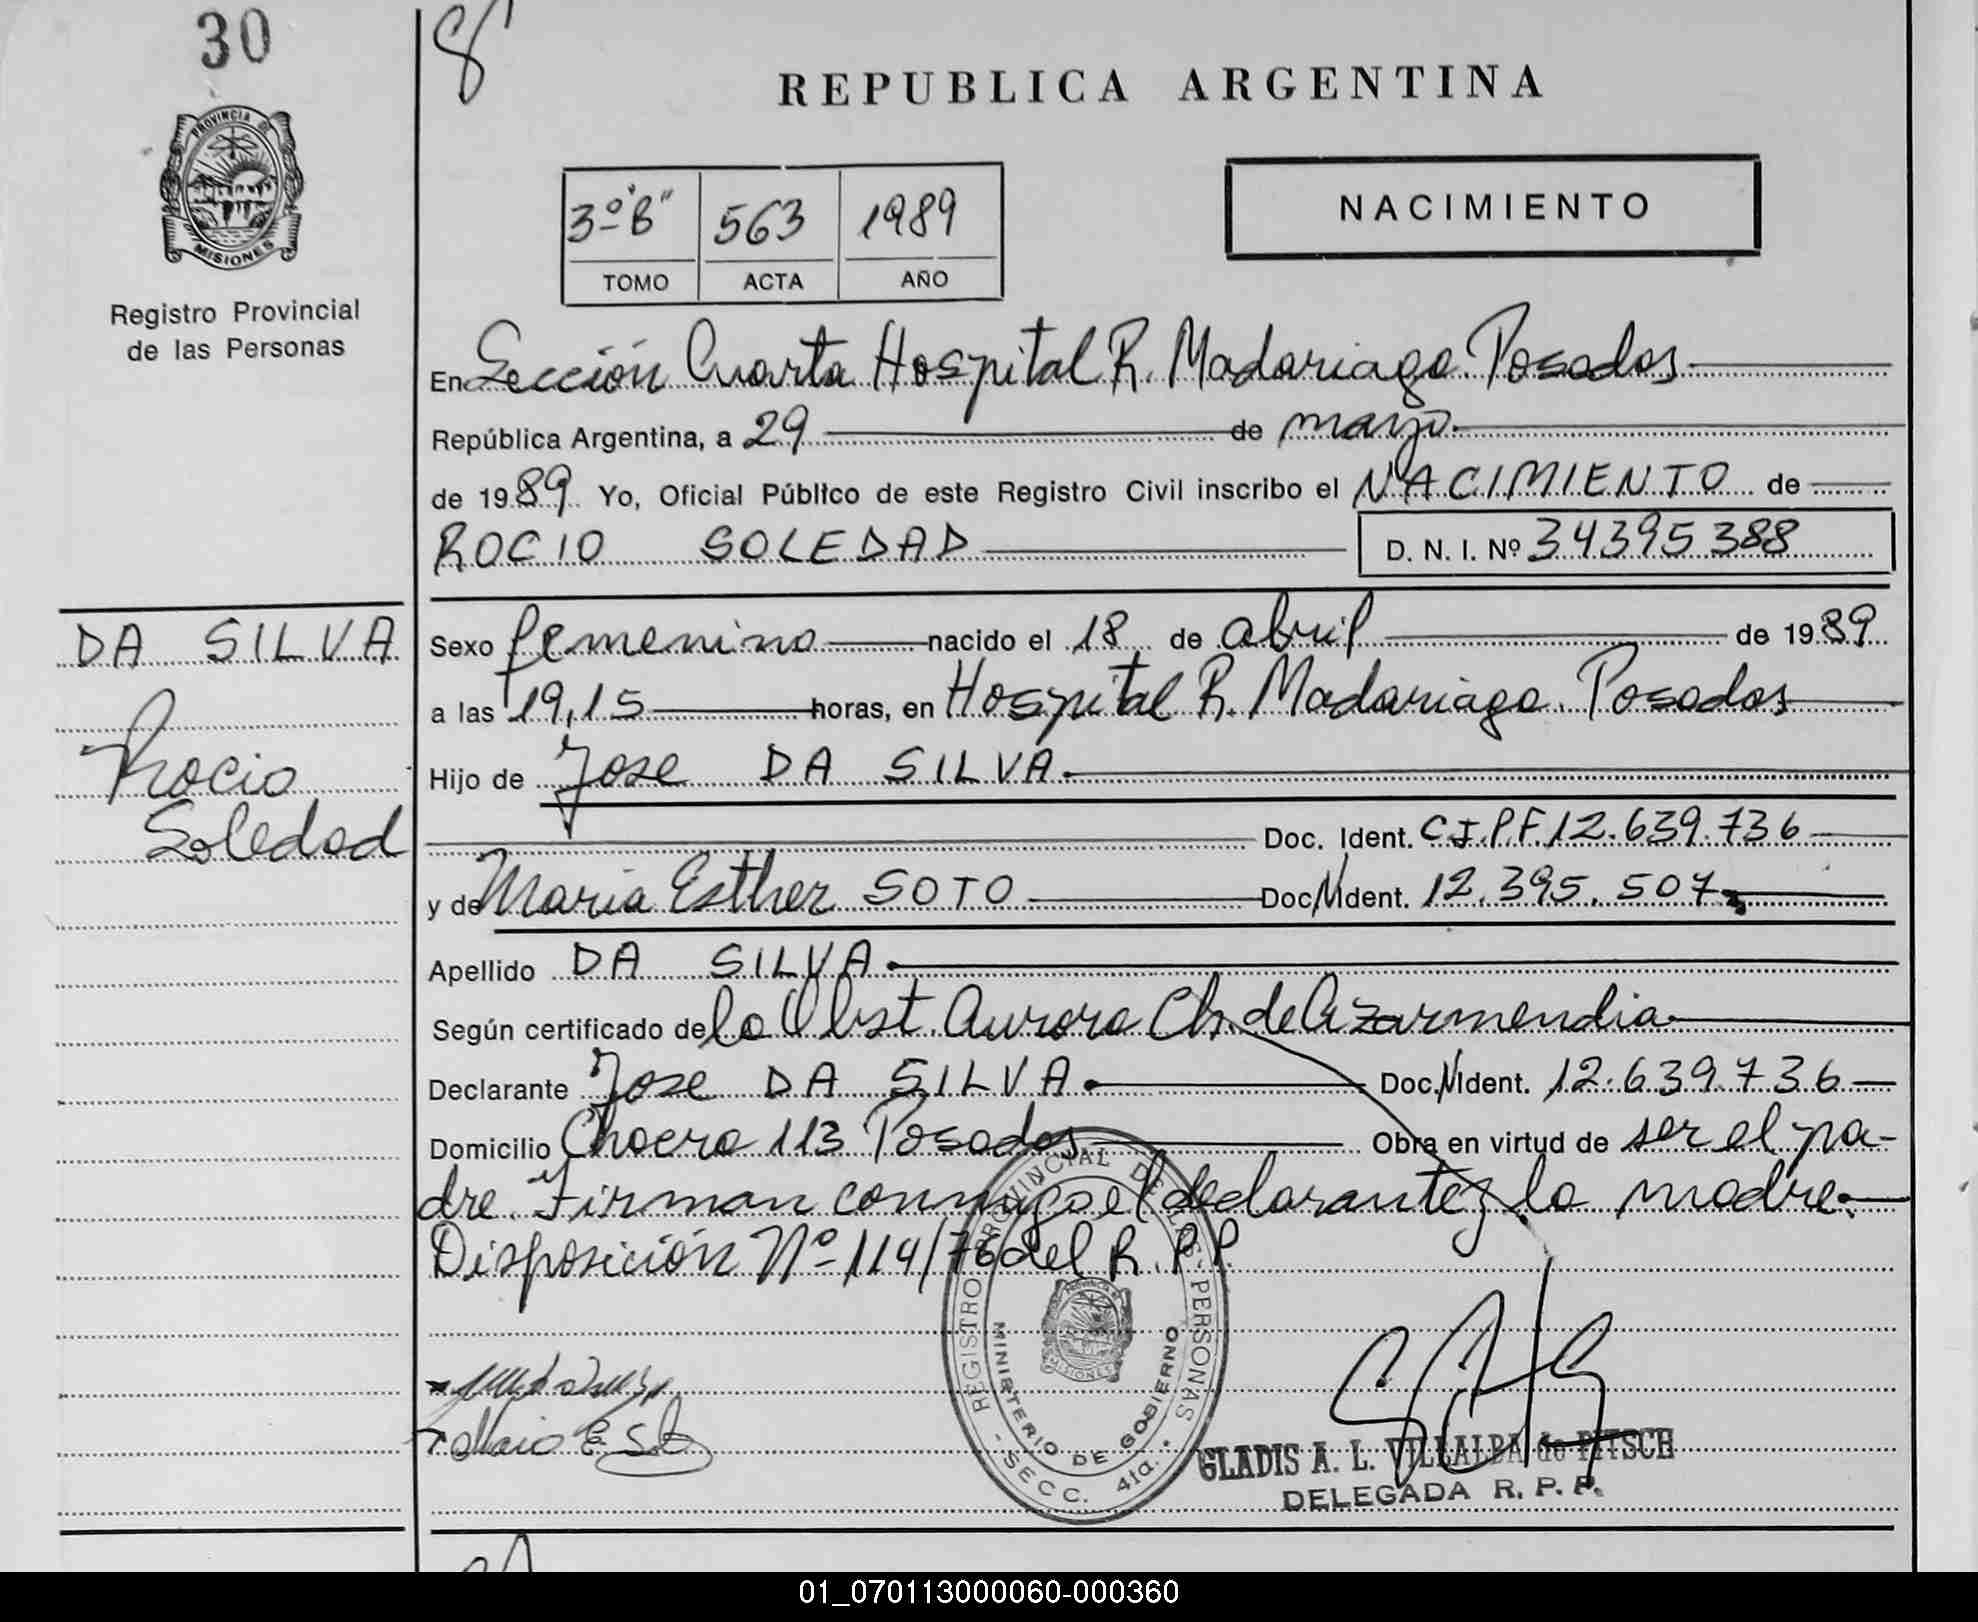 30
8
REPUBLICA ARGENTINA
PROVINCIA DE
MISIONES
Registro Provincial
de las Personas
3º "B" 563 1989
TOMO ACTA AÑO
NACIMIENTO
En Sección Cuarta Hospital R. Madariaga. Posadas
República Argentina, a 29 de marzo.
de 1989. Yo, Oficial Público de este Registro Civil inscribo el NACIMIENTO de
ROCIO SOLEDAD D. N. I. Nº 34395388
DA SILVA
Rocio
Soledad
Sexo femenino nacido el 18 de abril de 1989
a las 19,15 horas, en Hospital R. Madariaga. Posadas
Hijo de Jose DA SILVA.
Doc. Ident. C.I.P.F. 12.639.736
y de Maria Esther SOTO Doc. N. Ident. 12.395.507
Apellido DA SILVA.
Según certificado de la Obst. Aurora Ch. de Azarmendia
Declarante Jose DA SILVA. Doc. N. Ident. 12.639.736
Domicilio Chacra 113 Posadas Obra en virtud de ser el pa-
dre. Firman conmigo el declarante y la madre.
Disposición Nº 114/76 del R.P.P.
REGISTRO PROVINCIAL DE LAS PERSONAS
MINISTERIO DE GOBIERNO
PROVINCIA DE
MISIONES
- SECC. 4ta. -
Maria E. Soto
GLADIS A. L. VILLALBA de PITSCH
DELEGADA R. P. P.
01_070113000060-000360